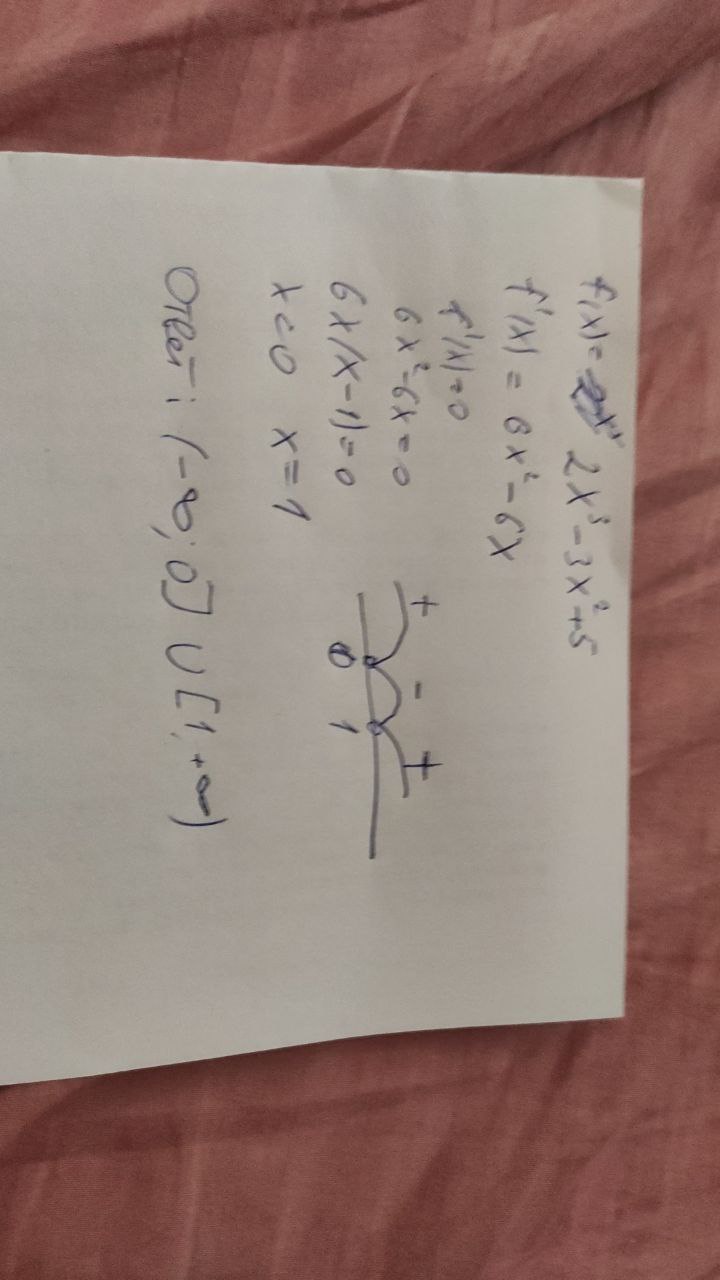 f(x) = 2x³ - 3x² + 5
f'(x) = 6x² - 6x
f'(x) = 0
6x² - 6x = 0
+ - +
6x(x - 1) = 0
0 1
x = 0 x = 1
Ответ: (-∞; 0] ∪ [1; +∞)